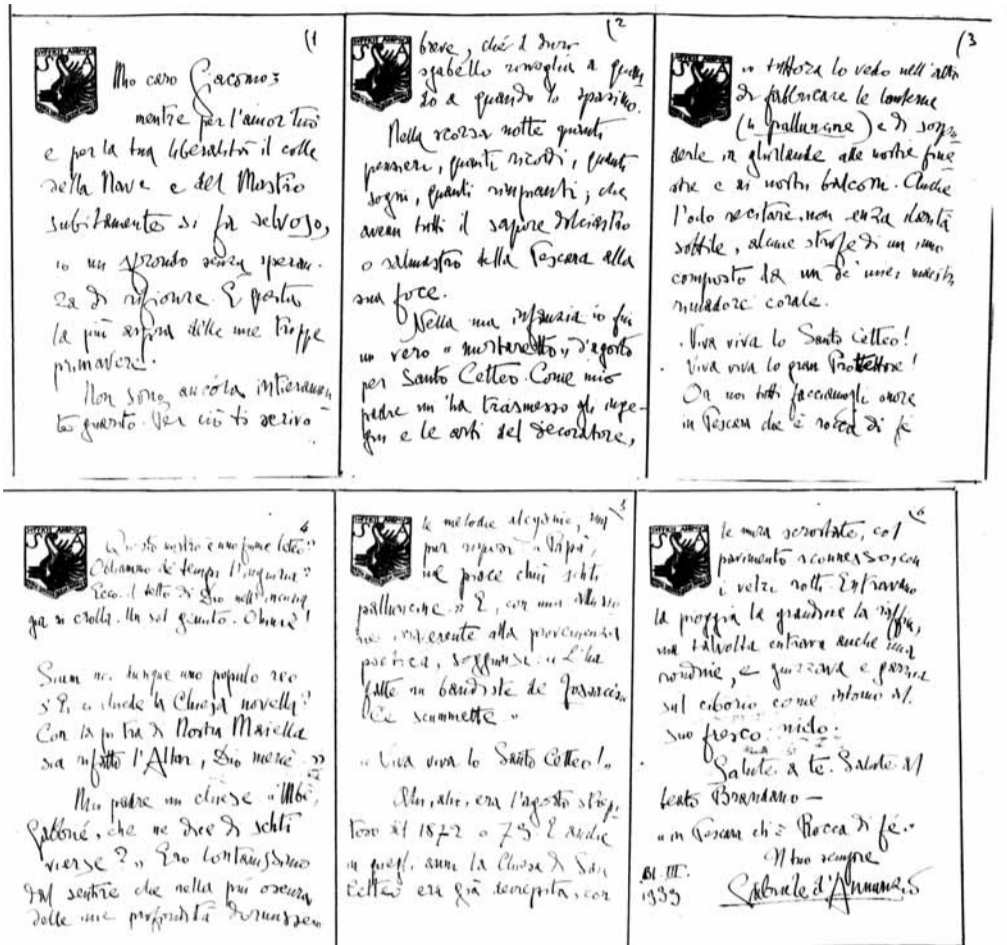 (1
Mio caro Giacomo,
mentre per l'amor tuo
e per la tua liberalità il colle
della Nave e del Mastio
subitamente si fa selvoso,
io mi sfrondo senza speran-
za di rifiorire. È questa
la più aspra delle mie troppe
primavere.
Non sono ancóra intieramen
te guarito. Per ciò ti scrivo
(2
breve, ché il duro
sgabello risveglia a quan
do a quando lo spasimo.
Nella scorsa notte quanti
pensieri, quanti ricordi, quanti
sogni, quanti rimpianti; che
avean tutti il sapore dolciastro
o salmastro della Pescara alla
sua foce.
Nella mia infanzia io fui
un vero "mortaretto" d'agosto
per Santo Cetteo. Come mio
padre mi ha trasmesso gli inge-
gni e le arti del decoratore,
(3
io tuttora lo vedo nell'atto
di fabbricare le lanterne
(li palluncine) e di sospen
derle in ghirlande alle nostre fine
stre e ai nostri balconi. Anche
l'odo recitare, non senza ilarità
sottile, alcune strofe di un inno
composto da un de' miei maestri,
rimadore corale.
Viva viva lo Santo Cetteo!
Viva viva lo gran Protettore!
On noi tutti facciamogli onore
in Pescara che è rocca di fé
4
Questo nostro è uno fiume leteo?
Obliammo de' tempi l'ingiuria?
Ecco il tetto di Dio nell'incuria
già si crolla. Un sol grunto. Ohimè!
Siam noi dunque uno popolo reo
s'Ei ci chiede la Chiesa novella?
Con la pietra di Nostra Maiella
sia rifatto l'Altar, Dio mercè."
Mio padre mi chiese "Mbè,
Gabbriné, che ne dice di schti
vierse?" Ero lontanissimo
dal sentire che nella più oscura
delle mie profondità dormissero
5
le melodie alcyonie,
pur risposi "Papà,
me piace chiù schti
palluncine." E, con una allusio
ne irriverente alla provenienza
poetica, soggiunse: "L'ha
fatte nu bandiste de
Ce scummette"
"Viva viva lo Santo Cetteo!"
Ahi, ahi, era l'agosto strepi
toso del 1872 o 73. E anche
in quegli anni la Chiesa di San
Cetteo era già decrepita, con
6
le mura scrostate, col
pavimento sconnesso, con
i vetri rotti. Entravano
la pioggia la grandine la raffica,
ma talvolta entrava anche una
rondine, e guizzava e garriva
sul ciborio come intorno al
suo fresco nido.
Salute a te. Salute al
beato Brandano —
"in Pescara ch'è Rocca di fé."
Il tuo sempre
Gabriele d'Annunzio
III.
1939